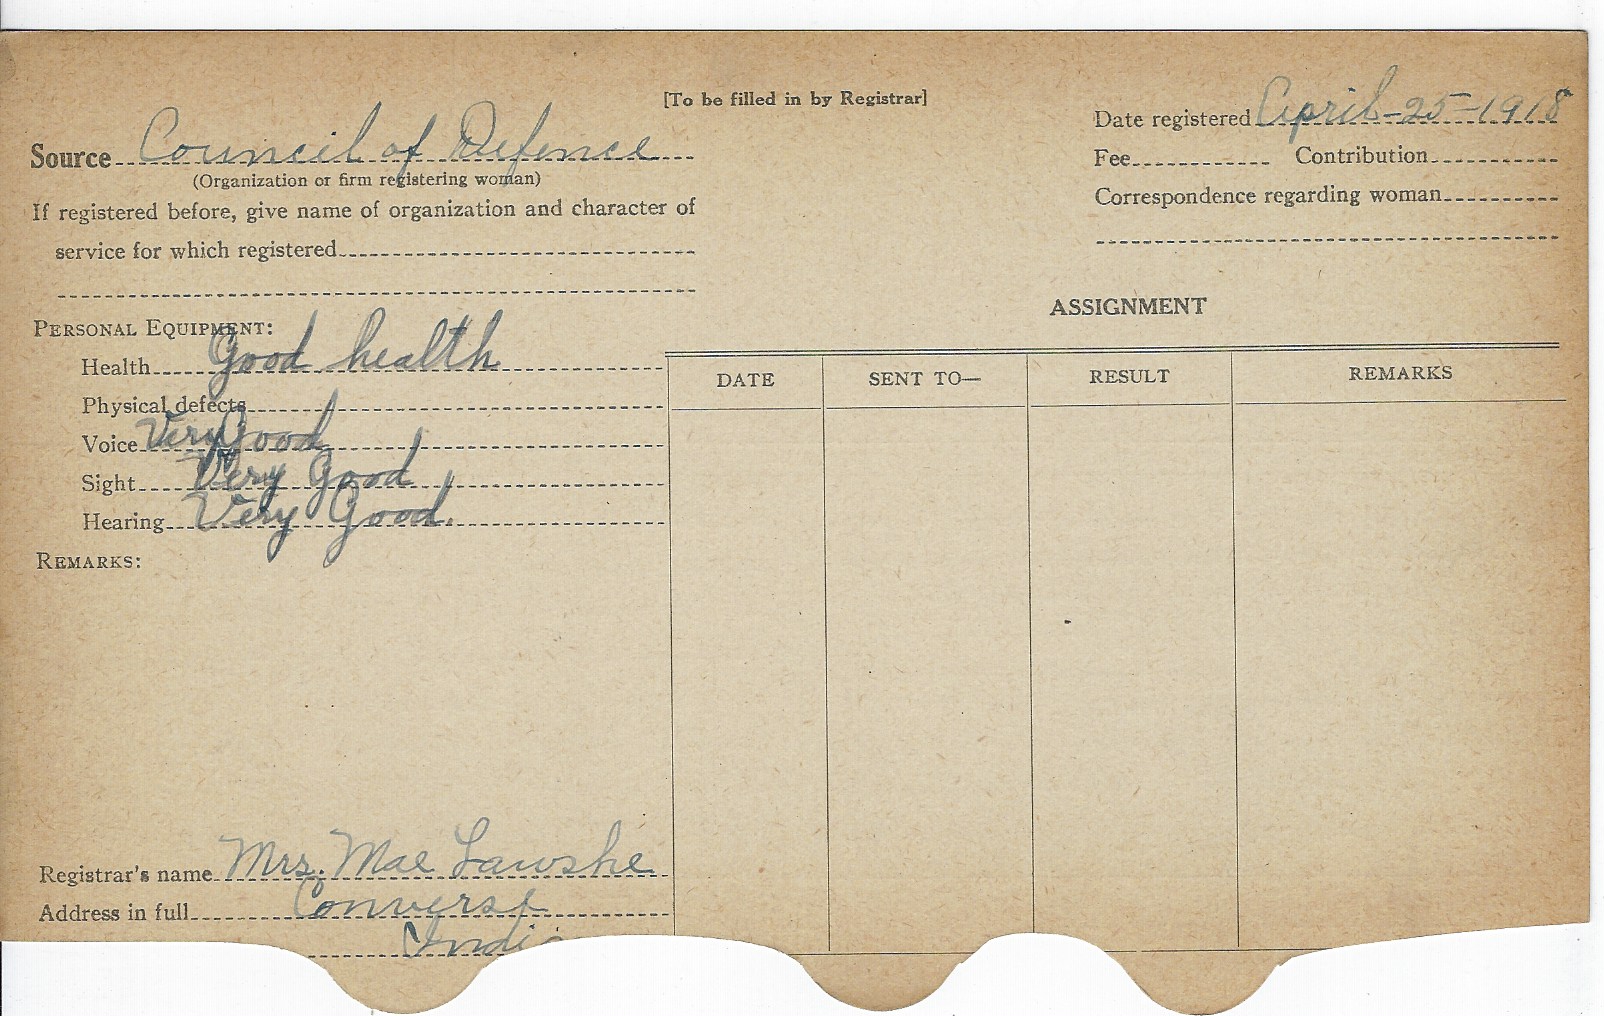 [To be filled in by Registrar]
Date registered April-25-1918
Source Council of Defence
(Organization or firm registering woman)
Fee Contribution
If registered before, give name of organization and character of
service for which registered
Correspondence regarding woman
PERSONAL EQUIPMENT:
Health Good health
Physical defects
Voice Very Good
Sight Very Good
Hearing Very Good.
REMARKS:
ASSIGNMENT
DATE SENT TO— RESULT REMARKS
Registrar's name Mrs. Mae Lawshe
Address in full Converse
Indi